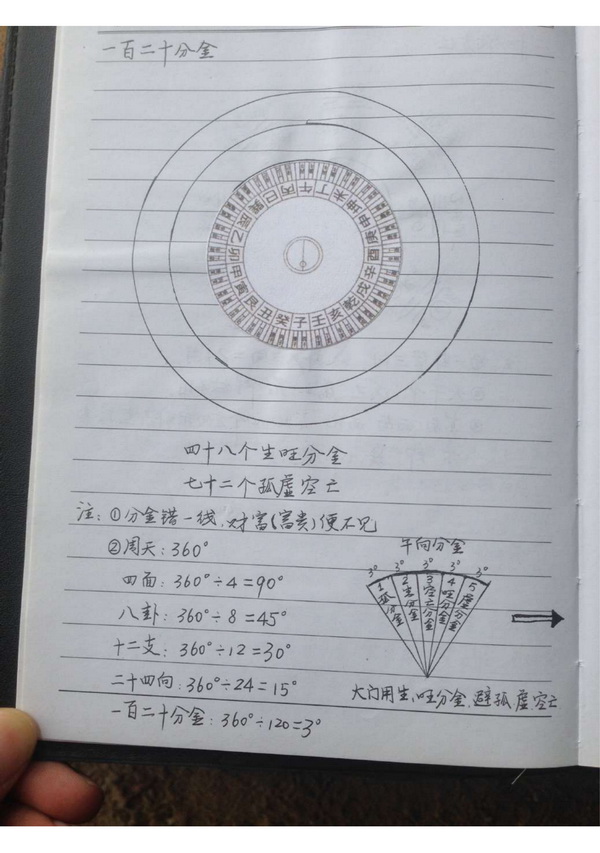 一百二十分金
午丁未坤申庚酉辛戌乾亥壬子癸丑艮寅甲卯乙辰巽巳丙
四十八个生旺分金
七十二个孤虚空亡
注：①分金错一线，财富(富贵)便不见
②周天：360°
四面：360°÷4=90°
八卦：360°÷8=45°
十二支：360°÷12=30°
二十四向：360°÷24=15°
一百二十分金：360°÷120=3°
午向分金
3° 3° 3° 3° 3°
1孤分金
2生分金
3空亡分金
4旺分金
5虚分金
大门用生、旺分金，避孤、虚、空亡